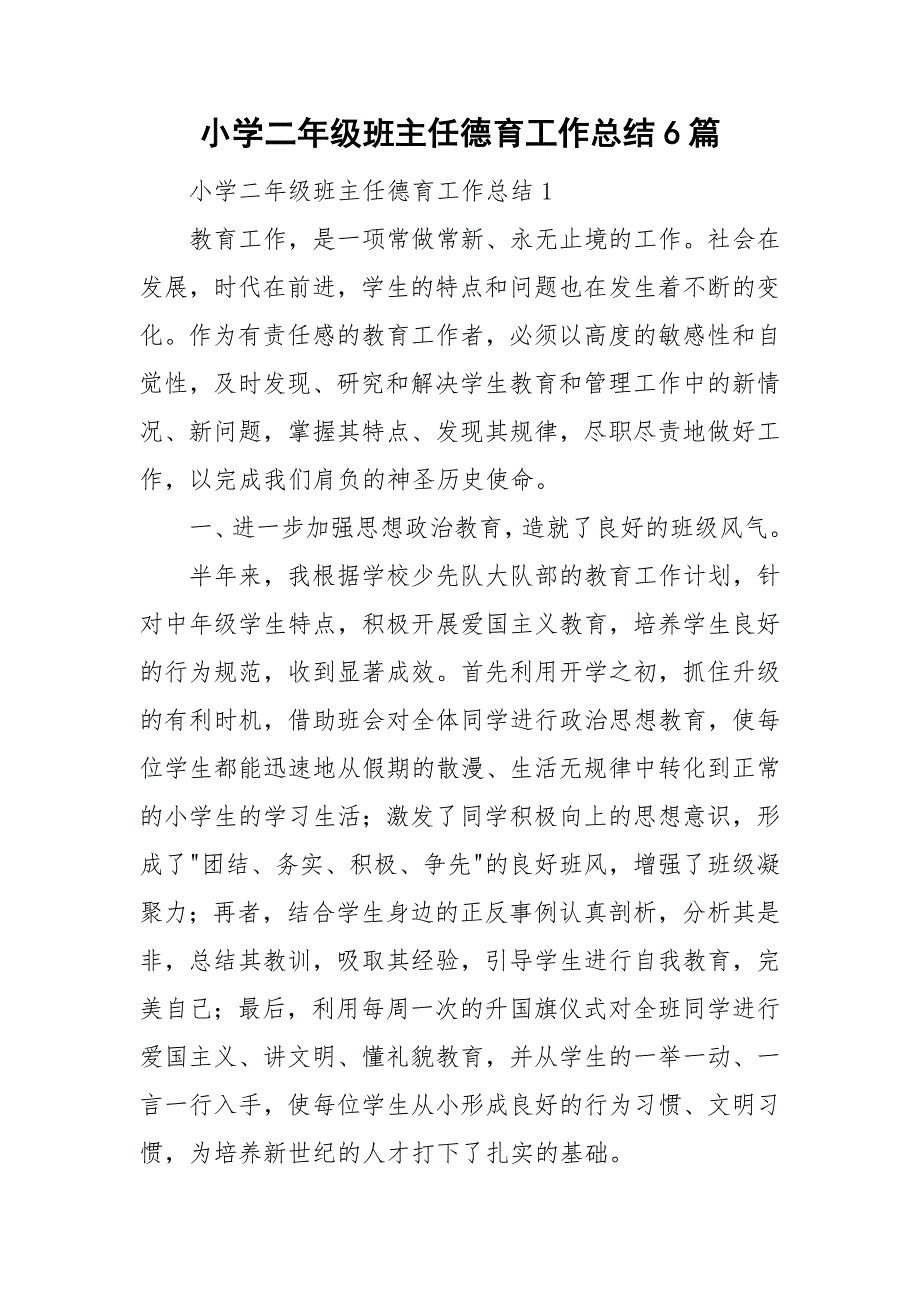 小学二年级班主任德育工作总结6篇
小学二年级班主任德育工作总结1
教育工作，是一项常做常新、永无止境的工作。社会在
发展，时代在前进，学生的特点和问题也在发生着不断的变
化。作为有责任感的教育工作者，必须以高度的敏感性和自
觉性，及时发现、研究和解决学生教育和管理工作中的新情
况、新问题，掌握其特点、发现其规律，尽职尽责地做好工
作，以完成我们肩负的神圣历史使命。
一、进一步加强思想政治教育，造就了良好的班级风气。
半年来，我根据学校少先队大队部的教育工作计划，针
对中年级学生特点，积极开展爱国主义教育，培养学生良好
的行为规范，收到显著成效。首先利用开学之初，抓住升级
的有利时机，借助班会对全体同学进行政治思想教育，使每
位学生都能迅速地从假期的散漫、生活无规律中转化到正常
的小学生的学习生活；激发了同学积极向上的思想意识，形
成了"团结、务实、积极、争先"的良好班风，增强了班级凝
聚力；再者，结合学生身边的正反事例认真剖析，分析其是
非，总结其教训，吸取其经验，引导学生进行自我教育，完
美自己；最后，利用每周一次的升国旗仪式对全班同学进行
爱国主义、讲文明、懂礼貌教育，并从学生的一举一动、一
言一行入手，使每位学生从小形成良好的行为习惯、文明习
惯，为培养新世纪的人才打下了扎实的基础。